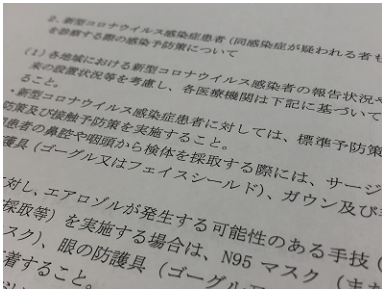 2、新型コロナウイルス感染症患者(同感染症が疑われる者も
を診察する際の感染予防策について
(1)各地域における新型コロナウイルス感染者の報告状況や
来の設置状況等を考慮し、各医療機関は下記に基づいて
ること。
・新型コロナウイルス感染症患者に対しては、標準予防策
防策及び接触予防策を実施すること。
患者の鼻腔や咽頭から検体を採取する際には、サージ
護具(ゴーグル又はフェイスシールド)、ガウン及び手
対し、エアロゾルが発生する可能性のある手技(
採取等)を実施する場合は、N95 マスク(また
スク)、眼の防護具(ゴーグル
着すること。